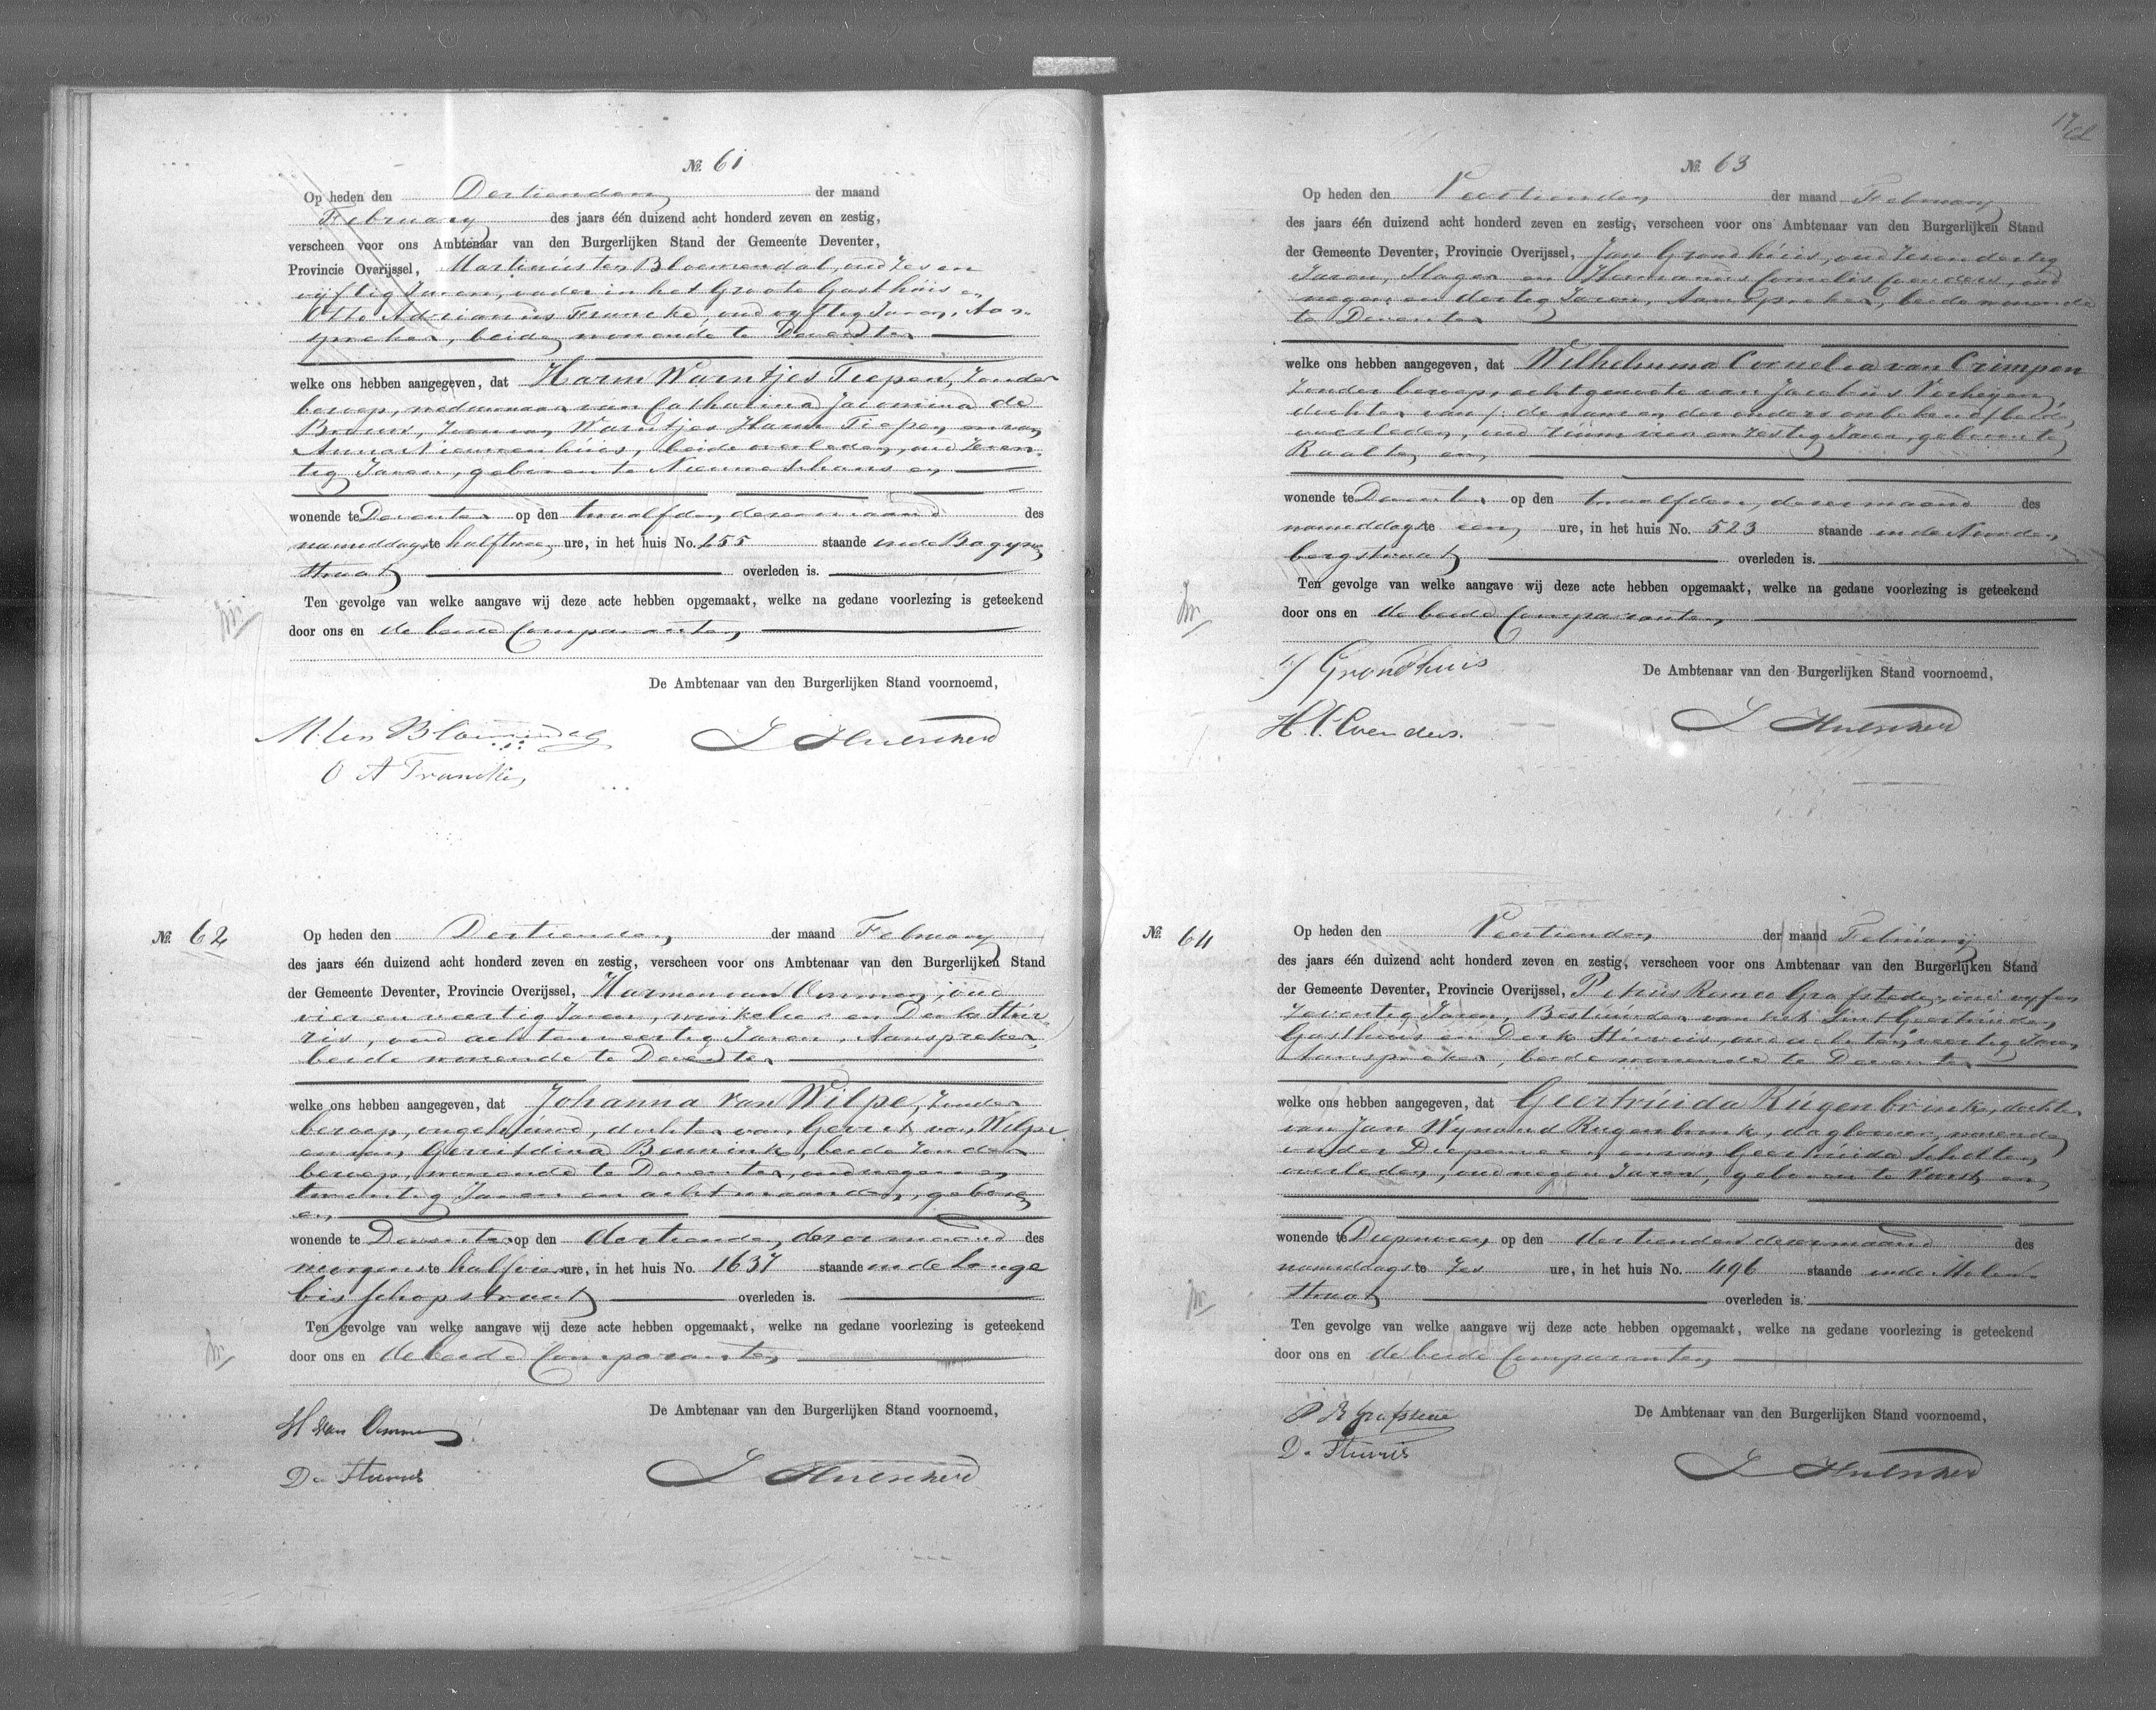 № 61
Op heden den Dertienden der maand
February des jaars één duizend acht honderd zeven en zestig,
verscheen voor ons Ambtenaar van den Burgerlijken Stand der Gemeente Deventer,
Provincie Overijssel, Martinus ten Bloemendal, oud zes en
vijftig Jaren, vader in het Groote Gasthuis en
Otto Adrianus Francke, oud vyftig Jaren, Aan-
spreker, beide wonende te Deventer
welke ons hebben aangegeven, dat Harm Warntjes Tiepen, zonder
beroep, weduwnaar van Catharina Jacomina de
Brouw, zoon van Warntjes Harm Tiepen, en van
Anna Nieuwenhuis, beide overleden, oud zeven-
tig Jaren, geboren te Nieuwe Schans en
wonende te Deventer op den twaalfden dezer maand des
nameddags te half twee ure, in het huis No. 155 staande in de Bagyne
straat overleden is.
Ten gevolge van welke aangave wij deze acte hebben opgemaakt, welke na gedane voorlezing is geteekend
door ons en de beide Comparanten
De Ambtenaar van den Burgerlijken Stand voornoemd,
M. ten Bloemendal
O A Francke
№ 62
Op heden den Dertienden der maand February
des jaars één duizend acht honderd zeven en zestig, verscheen voor ons Ambtenaar van den Burgerlijken Stand
der Gemeente Deventer, Provincie Overijssel, Harmen van Ommen, oud
vier en veertig Jaren, winkelier en Derk Stuv-
ris, oud acht en veertig Jaren, Aanspreker,
beide wonende te Deventer
welke ons hebben aangegeven, dat Johanna van Wilpe, zonder
beroep, ongehuwd, dochter van Gerrit van Wilpe
en van Gerritdina Bennink, beide zonder
beroep, wonende te Deventer, oud negen en
twintig Jaren en acht maanden, geboren
en
wonende te Deventer op den dertienden dezer maand des
morgens te half vier ure, in het huis No. 1637 staande in de Lange
bisschopstraat overleden is.
Ten gevolge van welke aangave wij deze acte hebben opgemaakt, welke na gedane voorlezing is geteekend
door ons en de beide Comparanten
De Ambtenaar van den Burgerlijken Stand voornoemd,
H van Ommen
D. Stuvris
№ 63
Op heden den Veertienden der maand February
des jaars één duizend acht honderd zeven en zestig, verscheen voor ons Ambtenaar van den Burgerlijken Stand
der Gemeente Deventer, Provincie Overijssel, Jan Grondhuis, oud zeven dertig
Jaren, Slager en Hermanus Cornelis Coenders, oud
negen en dertig Jaren, Aanspreker, beide wonende
te Deventer
welke ons hebben aangegeven, dat Wilhelmina Cornelia van Crimpen
zonder beroep, echtgenoote van Jacobus Verheijen,
dochter van (: de namen der ouders onbekend :) beide
overleden, oud ruim vier en zestig Jaren, geboren te
Raalte en
wonende te Deventer op den twaalfden dezer maand des
nameddags te een ure, in het huis No. 523 staande in de Noorden
bergstraat overleden is.
Ten gevolge van welke aangave wij deze acte hebben opgemaakt, welke na gedane voorlezing is geteekend
door ons en de beide Comparanten
De Ambtenaar van den Burgerlijken Stand voornoemd,
J Grondhuis
H. C. Coenders.
№ 64
Op heden den Veertienden der maand February
des jaars één duizend acht honderd zeven en zestig, verscheen voor ons Ambtenaar van den Burgerlijken Stand
der Gemeente Deventer, Provincie Overijssel, Petrus Romeo Grafstede, oud vyf en
zeventig Jaren, Bestuurder van het Sint Geertruiden
Gasthuis en Derk Stuvris, oud acht en veertig Jaren
Aanspreker, beide wonende te Deventer
welke ons hebben aangegeven, dat Geertruida Rugenbrink, dochter
van Jan Wynand Rugenbrink, daglooner, wonende
onder Diepenveen, en van Geertruida Scholten,
overleden, oud negen Jaren, geboren te Vorst en
wonende te Diepenveen op den dertienden dezer maand des
nameddags te zes ure, in het huis No. 496 staande in de Molen-
straat overleden is.
Ten gevolge van welke aangave wij deze acte hebben opgemaakt, welke na gedane voorlezing is geteekend
door ons en de beide Comparanten
De Ambtenaar van den Burgerlijken Stand voornoemd,
P R Grafstede
D. Stuvris